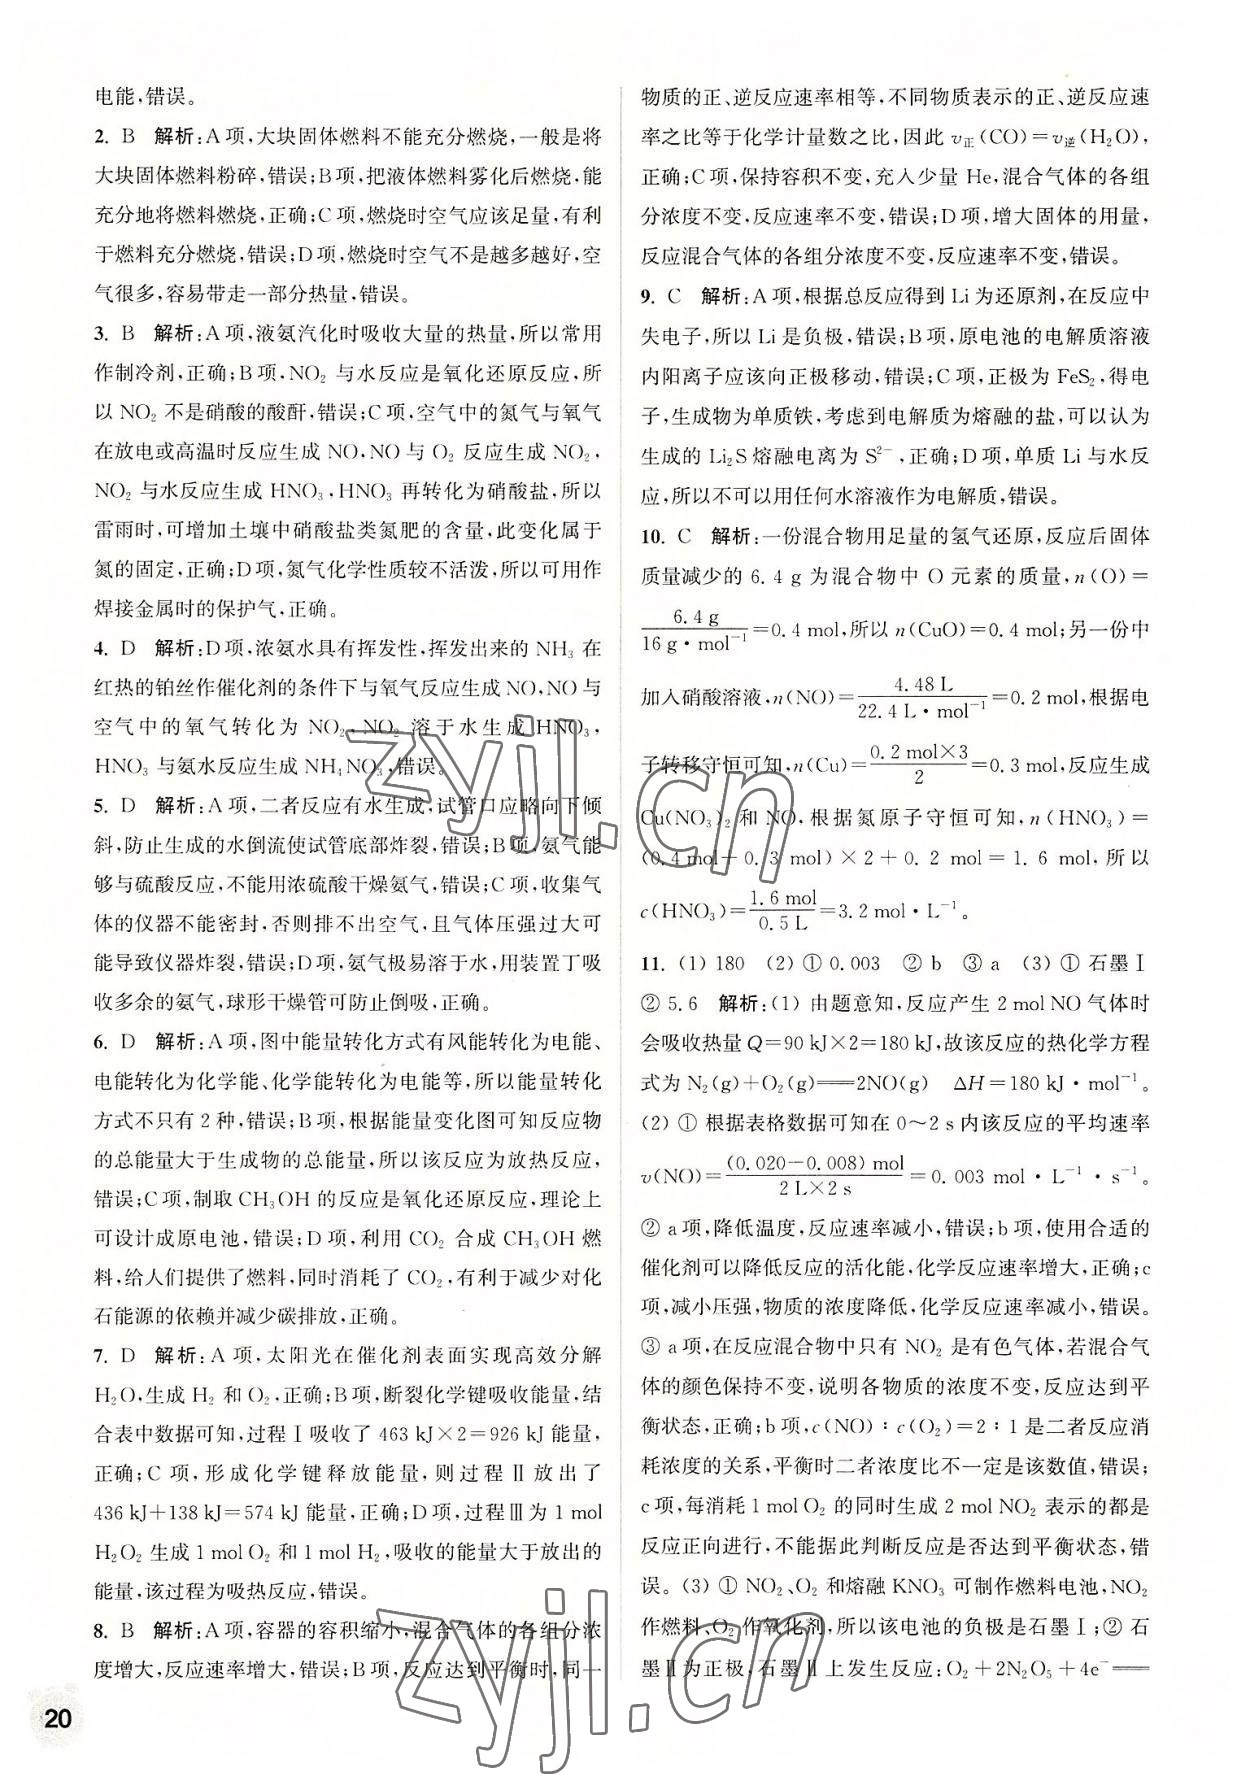 电能,错误。
2. B 解析:A项,大块固体燃料不能充分燃烧,一般是将
大块固体燃料粉碎,错误;B项,把液体燃料雾化后燃烧,能
充分地将燃料燃烧,正确;C项,燃烧时空气应该足量,有利
于燃料充分燃烧,错误;D项,燃烧时空气不是越多越好,空
气很多,容易带走一部分热量,错误。
3. B 解析:A项,液氨汽化时吸收大量的热量,所以常用
作制冷剂,正确;B项,NO₂ 与水反应是氧化还原反应,所
以 NO₂ 不是硝酸的酸酐,错误;C项,空气中的氮气与氧气
在放电或高温时反应生成 NO,NO 与 O₂ 反应生成 NO₂,
NO₂ 与水反应生成 HNO₃,HNO₃ 再转化为硝酸盐,所以
雷雨时,可增加土壤中硝酸盐类氮肥的含量,此变化属于
氮的固定,正确;D项,氮气化学性质较不活泼,所以可用作
焊接金属时的保护气,正确。
4. D 解析:D项,浓氨水具有挥发性,挥发出来的 NH₃ 在
红热的铂丝作催化剂的条件下与氧气反应生成 NO,NO 与
空气中的氧气转化为 NO₂,NO₂ 溶于水生成 HNO₃,
HNO₃ 与氨水反应生成 NH₄NO₃,错误。
5. D 解析:A项,二者反应有水生成,试管口应略向下倾
斜,防止生成的水倒流使试管底部炸裂,错误;B项,氨气能
够与硫酸反应,不能用浓硫酸干燥氨气,错误;C项,收集气
体的仪器不能密封,否则排不出空气,且气体压强过大可
能导致仪器炸裂,错误;D项,氨气极易溶于水,用装置丁吸
收多余的氨气,球形干燥管可防止倒吸,正确。
6. D 解析:A项,图中能量转化方式有风能转化为电能、
电能转化为化学能、化学能转化为电能等,所以能量转化
方式不只有 2 种,错误;B项,根据能量变化图可知反应物
的总能量大于生成物的总能量,所以该反应为放热反应,
错误;C项,制取 CH₃OH 的反应是氧化还原反应,理论上
可设计成原电池,错误;D项,利用 CO₂ 合成 CH₃OH 燃
料,给人们提供了燃料,同时消耗了 CO₂,有利于减少对化
石能源的依赖并减少碳排放,正确。
7. D 解析:A项,太阳光在催化剂表面实现高效分解
H₂O,生成 H₂ 和 O₂,正确;B项,断裂化学键吸收能量,结
合表中数据可知,过程Ⅰ吸收了 463 kJ×2=926 kJ 能量,
正确;C项,形成化学键释放能量,则过程Ⅱ放出了
436 kJ+138 kJ=574 kJ 能量,正确;D项,过程Ⅲ为 1 mol
H₂O₂ 生成 1 mol O₂ 和 1 mol H₂,吸收的能量大于放出的
能量,该过程为吸热反应,错误。
8. B 解析:A项,容器的容积缩小,混合气体的各组分浓
度增大,反应速率增大,错误;B项,反应达到平衡时,同一
物质的正、逆反应速率相等,不同物质表示的正、逆反应速
率之比等于化学计量数之比,因此 v正(CO)=v逆(H₂O),
正确;C项,保持容积不变,充入少量 He,混合气体的各组
分浓度不变,反应速率不变,错误;D项,增大固体的用量,
反应混合气体的各组分浓度不变,反应速率不变,错误。
9. C 解析:A项,根据总反应得到 Li 为还原剂,在反应中
失电子,所以 Li 是负极,错误;B项,原电池的电解质溶液
内阳离子应该向正极移动,错误;C项,正极为 FeS₂,得电
子,生成物为单质铁,考虑到电解质为熔融的盐,可以认为
生成的 Li₂S 熔融电离为 S²⁻,正确;D项,单质 Li 与水反
应,所以不可以用任何水溶液作为电解质,错误。
10. C 解析:一份混合物用足量的氢气还原,反应后固体
质量减少的 6.4 g 为混合物中 O 元素的质量,n(O)=
6.4 g/16 g·mol⁻¹=0.4 mol,所以 n(CuO)=0.4 mol;另一份中
加入硝酸溶液,n(NO)=4.48 L/22.4 L·mol⁻¹=0.2 mol,根据电
子转移守恒可知,n(Cu)=0.2 mol×3/2=0.3 mol,反应生成
Cu(NO₃)₂ 和 NO,根据氮原子守恒可知,n(HNO₃)=
(0.4 mol+0.3 mol)×2+0.2 mol=1.6 mol,所以
c(HNO₃)=1.6 mol/0.5 L=3.2 mol·L⁻¹。
11. (1) 180 (2) ① 0.003 ② b ③ a (3) ① 石墨Ⅰ
② 5.6 解析:(1) 由题意知,反应产生 2 mol NO 气体时
会吸收热量 Q=90 kJ×2=180 kJ,故该反应的热化学方程
式为 N₂(g)+O₂(g)══2NO(g) ΔH=180 kJ·mol⁻¹。
(2) ① 根据表格数据可知在 0~2 s 内该反应的平均速率
v(NO)=(0.020-0.008) mol/2 L×2 s=0.003 mol·L⁻¹·s⁻¹。
② a项,降低温度,反应速率减小,错误;b项,使用合适的
催化剂可以降低反应的活化能,化学反应速率增大,正确;c
项,减小压强,物质的浓度降低,化学反应速率减小,错误。
③ a项,在反应混合物中只有 NO₂ 是有色气体,若混合气
体的颜色保持不变,说明各物质的浓度不变,反应达到平
衡状态,正确;b项,c(NO)∶c(O₂)=2∶1 是二者反应消
耗浓度的关系,平衡时二者浓度比不一定是该数值,错误;
c项,每消耗 1 mol O₂ 的同时生成 2 mol NO₂ 表示的都是
反应正向进行,不能据此判断反应是否达到平衡状态,错
误。(3) ① NO₂、O₂ 和熔融 KNO₃ 可制作燃料电池,NO₂
作燃料,O₂ 作氧化剂,所以该电池的负极是石墨Ⅰ;② 石
墨Ⅱ为正极,石墨Ⅱ上发生反应:O₂+2N₂O₅+4e⁻══
20
zyjl.cn
zyjl.cn